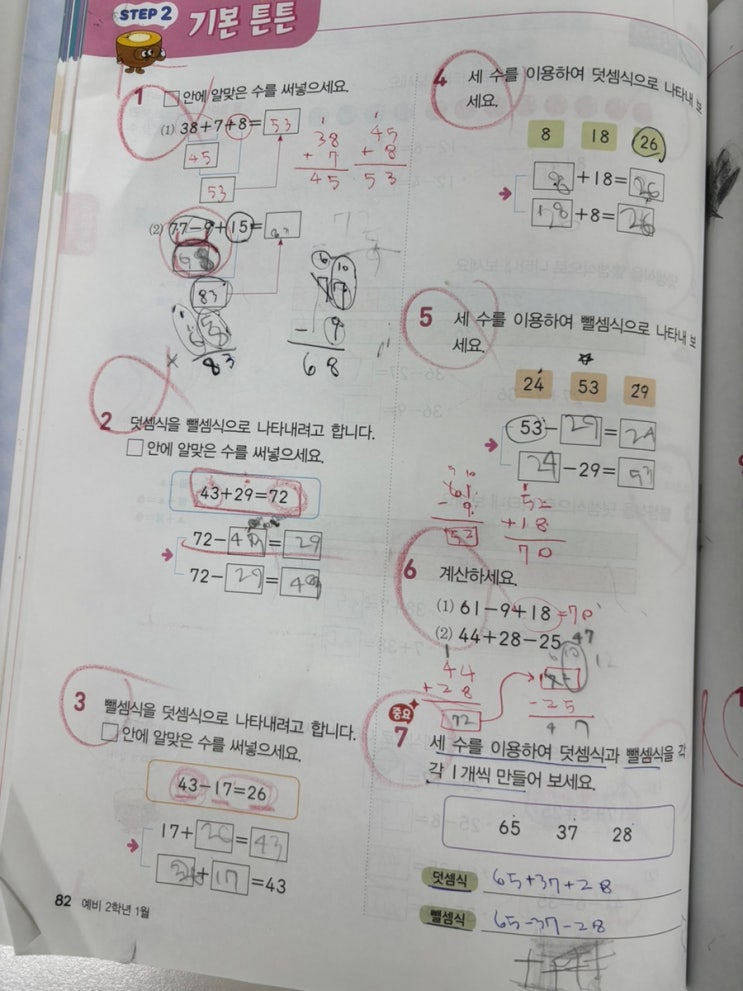 STEP 2 기본 튼튼
1 □ 안에 알맞은 수를 써넣으세요.
(1) 38+7+8= 53
45
53
38
+ 7
45
45
+ 8
53
(2) 77-9+15=
83
83
10
- 9
68
2 덧셈식을 뺄셈식으로 나타내려고 합니다.
□ 안에 알맞은 수를 써넣으세요.
43+29=72
72- = 29
72- 29 =
3 뺄셈식을 덧셈식으로 나타내려고 합니다.
□ 안에 알맞은 수를 써넣으세요.
43-17=26
17+ 26 = 43
+ 17 =43
82 예비 2학년 1월
4 세 수를 이용하여 덧셈식으로 나타내 보
세요.
8 18 26
8 +18= 26
18 +8= 26
5 세 수를 이용하여 뺄셈식으로 나타내 보
세요.
24 53 29
53- 29 = 24
24 -29=
61
- 9
52
52
+18
70
6 계산하세요.
(1) 61-9+18 =70
(2) 44+28-25 47
12
44
+28
72
10
-25
47
중요
7 세 수를 이용하여 덧셈식과 뺄셈식을 각
각 1개씩 만들어 보세요.
65 37 28
덧셈식 65+37+28
뺄셈식 65-37-28